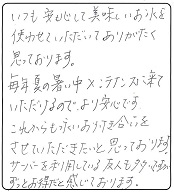 いつも安心して美味しいお水を
使わせていただいてありがたく
思っております。
毎年夏の暑い中メンテナンスに来て
いただけるのでより安心です
これからも永いお付き合いを
させていただきたいと思っております
サーバーを利用している友人も多々いますが
ずっとお得だと感じております。